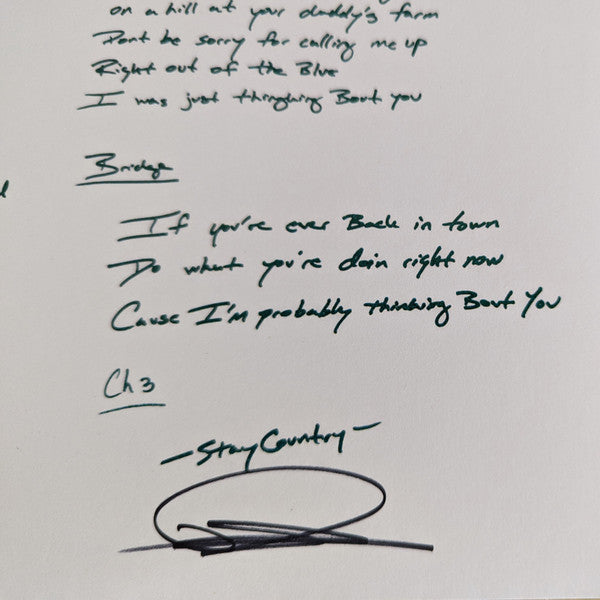 on a hill at your daddy's farm
Dont be sorry for calling me up
Right out of the Blue
I was just thinghing Bout you
Bridge
If you're ever Back in town
Do what you're doin right now
Cause I'm probably thinking Bout You
Ch 3
- Stay Country -